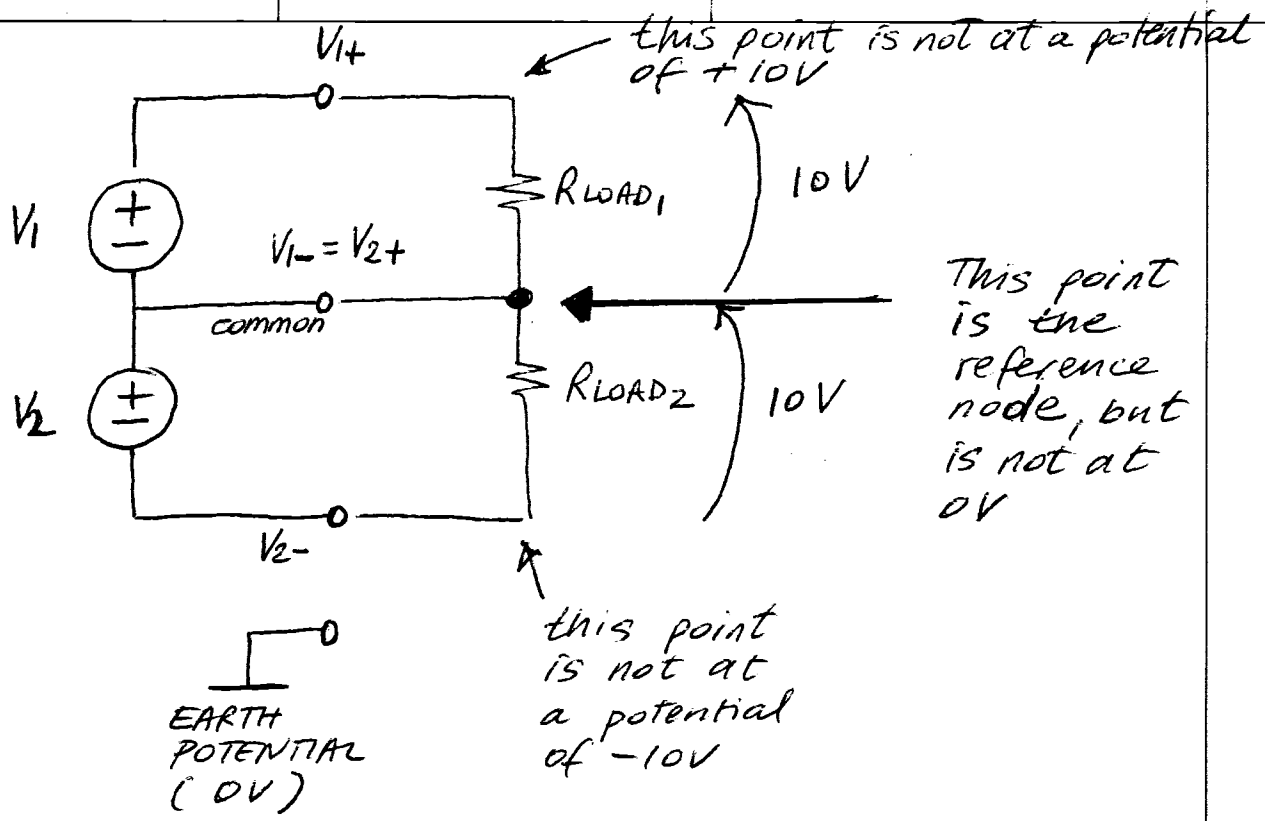 V1+
this point is not at a potential
of +10V
RLOAD1
10V
V1
+
−
V1- = V2+
common
This point
is the
reference
node, but
is not at
0V
V2
+
−
RLOAD2
10V
V2-
this point
is not at
a potential
of -10V
EARTH
POTENTIAL
( 0V )